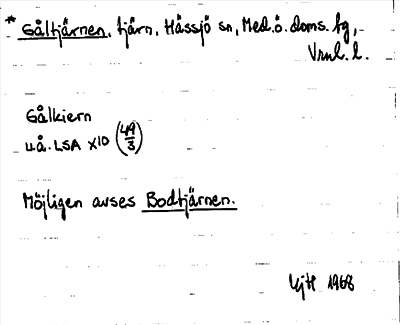 * Gåltjärnen, tjärn, Hässjö sn, Med.ö. doms. tg,
Vrnl. l.
Gålkiern
u.å. LSA X10 (49/3)
Möjligen avses Bodtjärnen.
1968